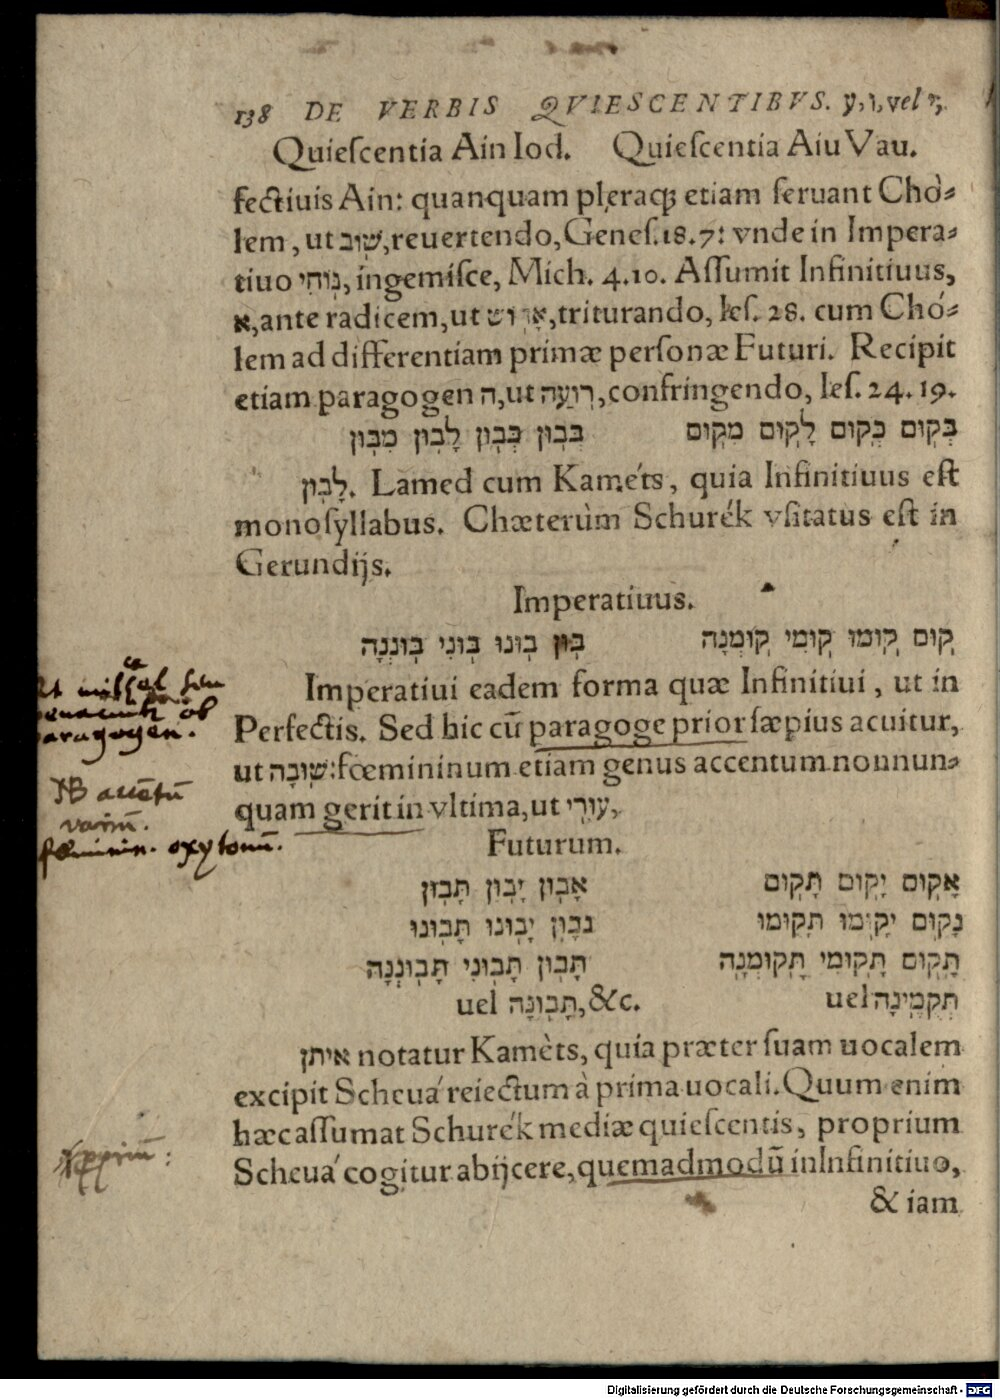 138 DE VERBIS QVIESCENTIBVS. y, ı, vel
Quieſcentia Ain Iod. Quieſcentia Aiu Vau.
fectiuis Ain: quanquam pleraq; etiam ſeruant Chò-
lem, ut שׁוֹב, reuertendo, Geneſ. 18. 7: vnde in Impera-
tiuo נוֹחִי, ingemiſce, Mich. 4. 10. Aſſumit Infinitiuus,
א, ante radicem, ut אָדוֹשׁ, triturando, Ieſ. 28. cum Chó-
lem ad differentiam primæ perſonæ Futuri. Recipit
etiam paragogen ה, ut רוֹעָה, confringendo, Ieſ. 24. 19.
בְּקוּם כְּקוּם לָקוּם מִקוּם בְּבוּן כְּבוּן לָבוּן מִבּוּן
לָבוּן. Lamed cum Kaméts, quia Infinitiuus eſt
monoſyllabus. Chæterùm Schurék vſitatus eſt in
Gerundijs.
Imperatiuus.
קוּם קוּמוּ קוּמִי קוֹמְנָה בּוּן בּוּנוּ בּוּנִי בּוּנְנָה
Imperatiui eadem forma quæ Infinitiui, ut in
Perfectis. Sed hic cū paragoge prior ſæpius acuitur,
ut שׁוּבָה: fœmininum etiam genus accentum nonnun-
quam gerit in vltima, ut עוּרִי,
paragogen.
NB accētū
variū.
fœminin. oxytonū.
Futurum.
אָקוּם יָקוּם תָּקוּם אָבוּן יָבוּן תָּבוּן
נָקוּם יָקוּמוּ תָּקוּמוּ נָבוּן יָבוּנוּ תָּבוּנוּ
תָּקוּם תָּקוּמִי תָּקוּמְנָה תָּבוּן תָּבוּנִי תָּבוּנְנָה
uel תְּקֻמֶינָה uel תָּבוֹנָּה, &c.
איתן notatur Kamèts, quia præter ſuam uocalem
excipit Scheuá reiectum à prima uocali. Quum enim
hæc aſſumat Schurék mediæ quieſcentis, proprium
Scheuá cogitur abijcere, quemadmodū in Infinitiuo,
& iam
Digitalisierung gefördert durch die Deutsche Forschungsgemeinschaft - DFG